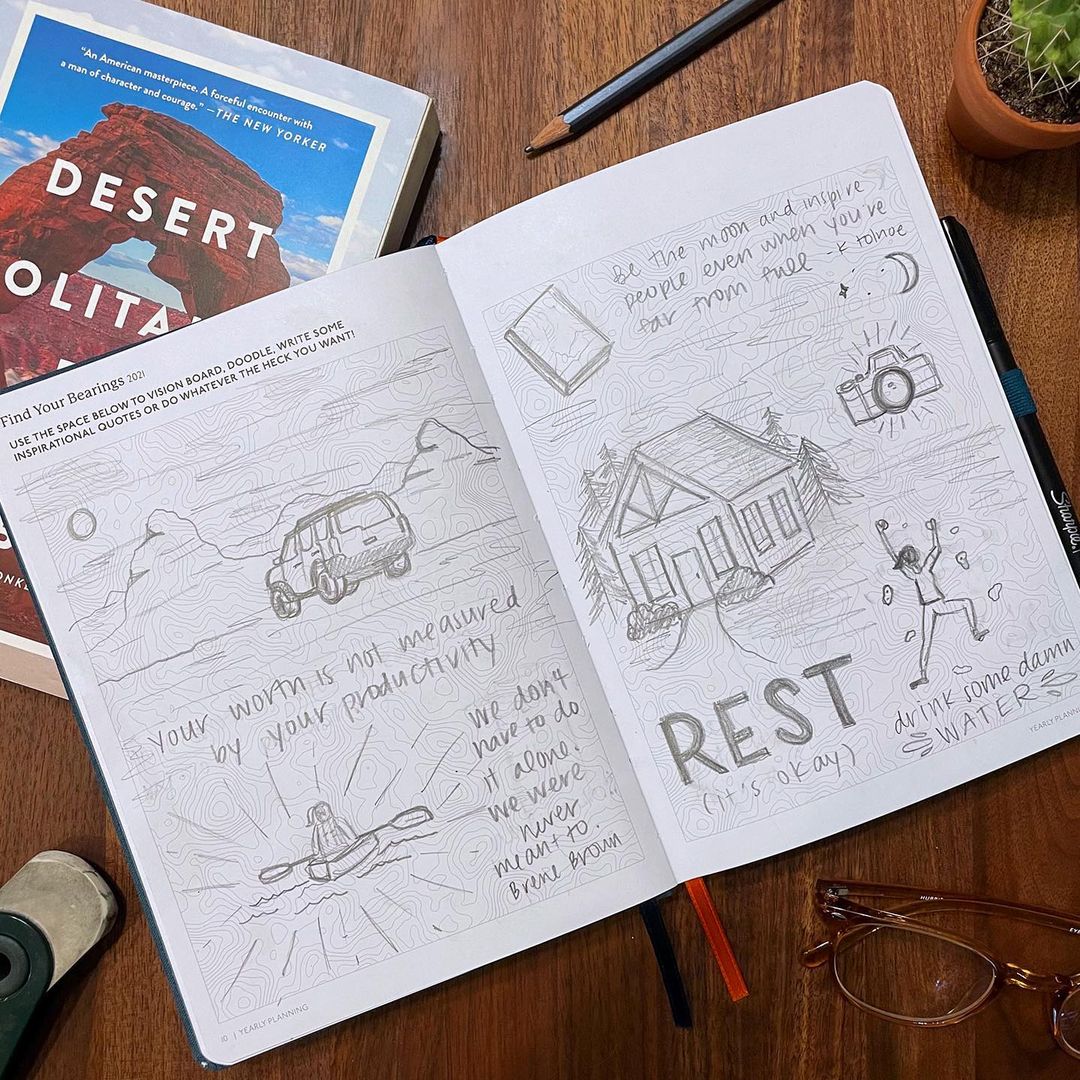 "An American masterpiece. A forceful encounter with
a man of character and courage." —THE NEW YORKER
DESERT
OLITA
Find Your Bearings 2021
USE THE SPACE BELOW TO VISION BOARD, DOODLE, WRITE SOME
INSPIRATIONAL QUOTES OR DO WHATEVER THE HECK YOU WANT!
your worth is not measured
by your productivity
We don't
have to do
it alone.
We were
never
meant to.
Brene Brown
10 | YEARLY PLANNING
Be the moon and inspire
people even when you're
far from full -K Tolnoe
REST
(it's okay)
drink some damn
WATER
YEARLY PLANNING
Sharpie